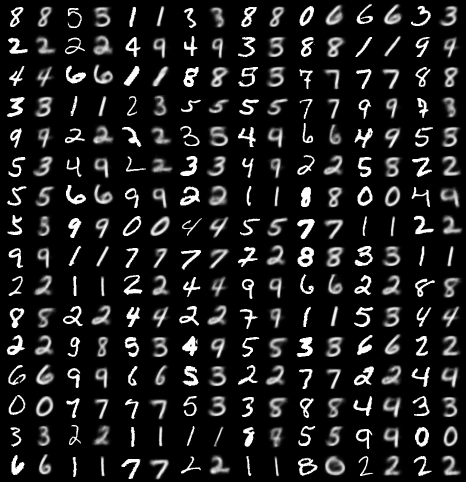 8 8 5 5 1 1 3 3 8 8 0 6 6 6 3 3
2 2 2 2 4 9 4 9 3 3 8 8 1 1 9 9
4 4 6 6 1 1 8 8 5 5 7 7 7 7 8 8
3 3 1 1 2 3 5 5 5 5 7 7 9 9 7 3
9 9 2 2 2 2 3 5 4 9 6 6 4 9 5 5
5 3 4 9 2 2 3 3 4 9 2 2 5 8 2 2
5 5 6 6 9 9 2 2 1 1 1 8 0 0 4 9
5 3 9 9 0 0 4 4 5 5 7 7 1 1 2 2
9 9 1 1 7 7 7 7 7 2 8 8 3 3 1 1
2 2 1 1 2 2 4 4 9 9 6 6 2 2 8 8
8 5 2 2 4 4 2 2 7 9 1 1 5 3 4 4
2 2 9 8 5 3 4 9 5 5 3 3 6 6 2 2
6 6 9 9 6 6 5 3 2 2 7 7 2 2 4 4
0 0 7 7 7 7 5 3 3 8 8 8 4 4 3 3
3 3 2 2 1 1 1 1 8 9 5 5 9 9 0 0
6 6 1 1 7 7 2 2 1 1 8 0 2 2 2 2